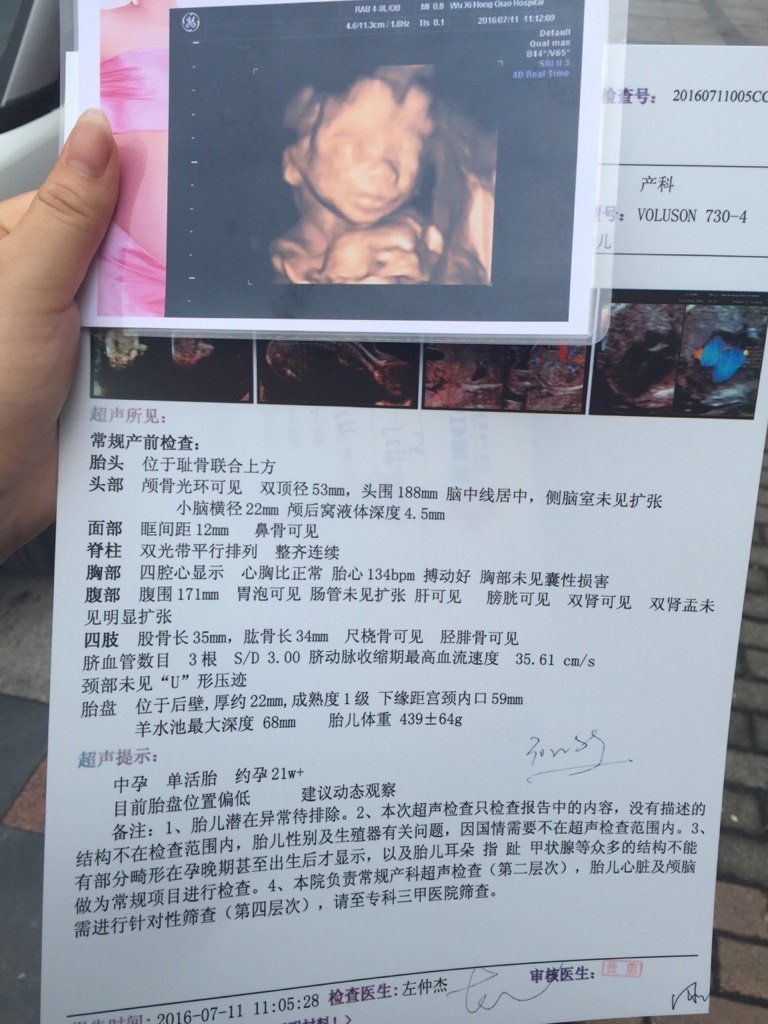 RAB 4-8L/OB MI 0.8 Wu Xi Hong Qiao Hospital
4.6/11.3cm / 1.8Hz TIs 0.1 2016/07/11 11:12:09
Default
Qual max
B44°/V65°
SRI II 3
4D Real Time
检查号: 20160711005CC
产科
型号: VOLUSON 730-4
儿
超声所见:
常规产前检查:
胎头 位于耻骨联合上方
头部 颅骨光环可见 双顶径53mm, 头围188mm 脑中线居中, 侧脑室未见扩张
小脑横径22mm 颅后窝液体深度4.5mm
面部 眶间距12mm 鼻骨可见
脊柱 双光带平行排列 整齐连续
胸部 四腔心显示 心胸比正常 胎心134bpm 搏动好 胸部未见囊性损害
腹部 腹围171mm 胃泡可见 肠管未见扩张 肝可见 膀胱可见 双肾可见 双肾盂未
见明显扩张
四肢 股骨长35mm, 肱骨长34mm 尺桡骨可见 胫腓骨可见
脐血管数目 3根 S/D 3.00 脐动脉收缩期最高血流速度 35.61 cm/s
颈部未见“U”形压迹
胎盘 位于后壁,厚约22mm,成熟度1级 下缘距宫颈内口59mm
羊水池最大深度 68mm 胎儿体重 439±64g
超声提示:
中孕 单活胎 约孕21w+
目前胎盘位置偏低 建议动态观察
备注: 1、胎儿潜在异常待排除。2、本次超声检查只检查报告中的内容, 没有描述的
结构不在检查范围内, 胎儿性别及生殖器有关问题, 因国情需要不在超声检查范围内。3、
有部分畸形在孕晚期甚至出生后才显示, 以及胎儿耳朵 指 趾 甲状腺等众多的结构不能
做为常规项目进行检查。4、本院负责常规产科超声检查（第二层次）, 胎儿心脏及颅脑
需进行针对性筛查（第四层次）, 请至专科三甲医院筛查。
报告时间: 2016-07-11 11:05:28 检查医生: 左仲杰 审核医生: